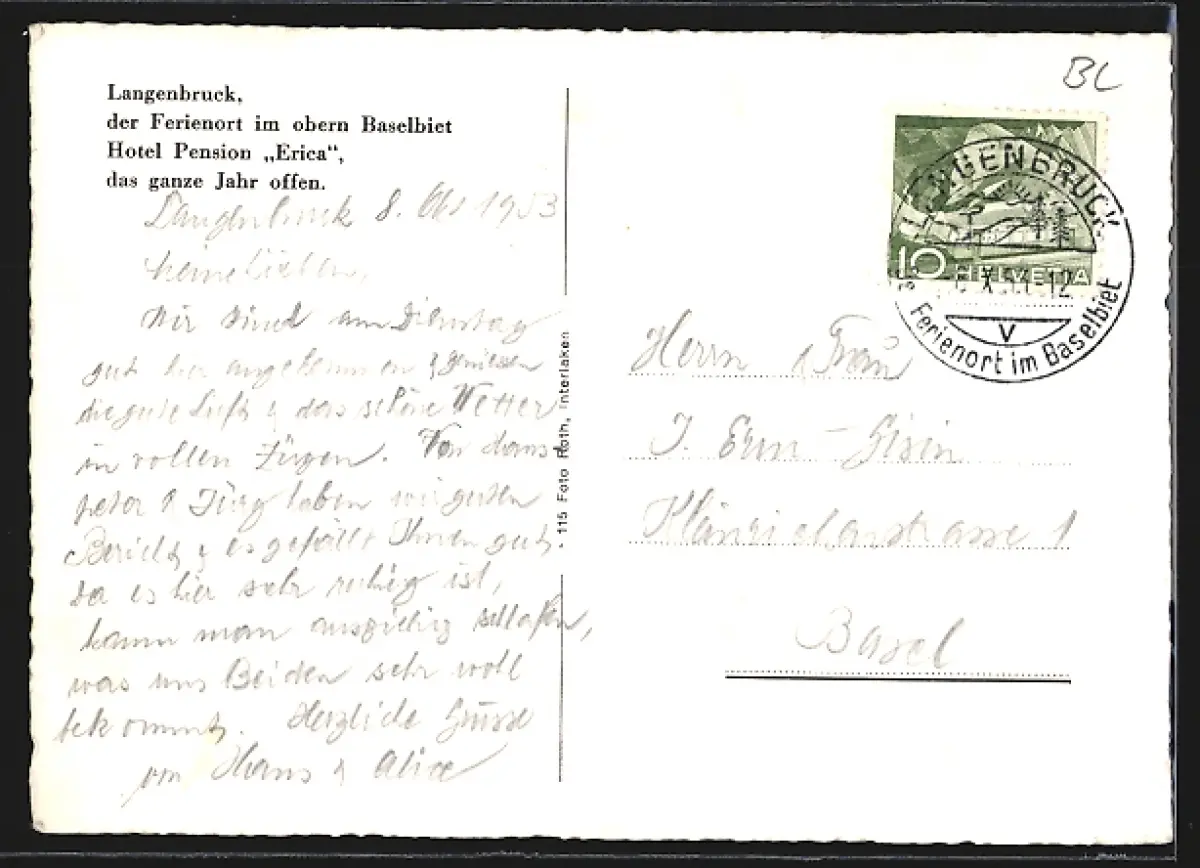 Langenbruck,
der Ferienort im obern Baselbiet
Hotel Pension „Erica“,
das ganze Jahr offen.
Langenbruck 8. Okt 1953
Meine Lieben,
Wir sind am Dienstag
gut hier angekommen & geniessen
die gute Luft & das schöne Wetter
in vollen Zügen. Von Hans-
peter & Jürg haben wir guten
Bericht & es gefällt Ihnen gut.
Da es hier sehr ruhig ist,
kann man ausgiebig schlafen,
was uns Beiden sehr wohl
bekommt. Herzliche Grüsse
von Hans & Alice
115 Foto Roth, Interlaken
BL
LANGENBRUCK
10 HELVETIA
X 12
V
Ferienort im Baselbiet
Herrn & Frau
J. Erni-Gisin
1
Basel